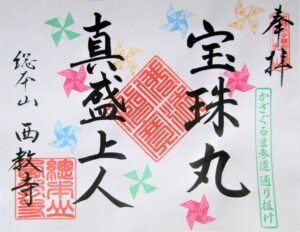 奉拝
かざぐるま参道通り抜け
宝珠丸
真盛上人
総本山 西教寺